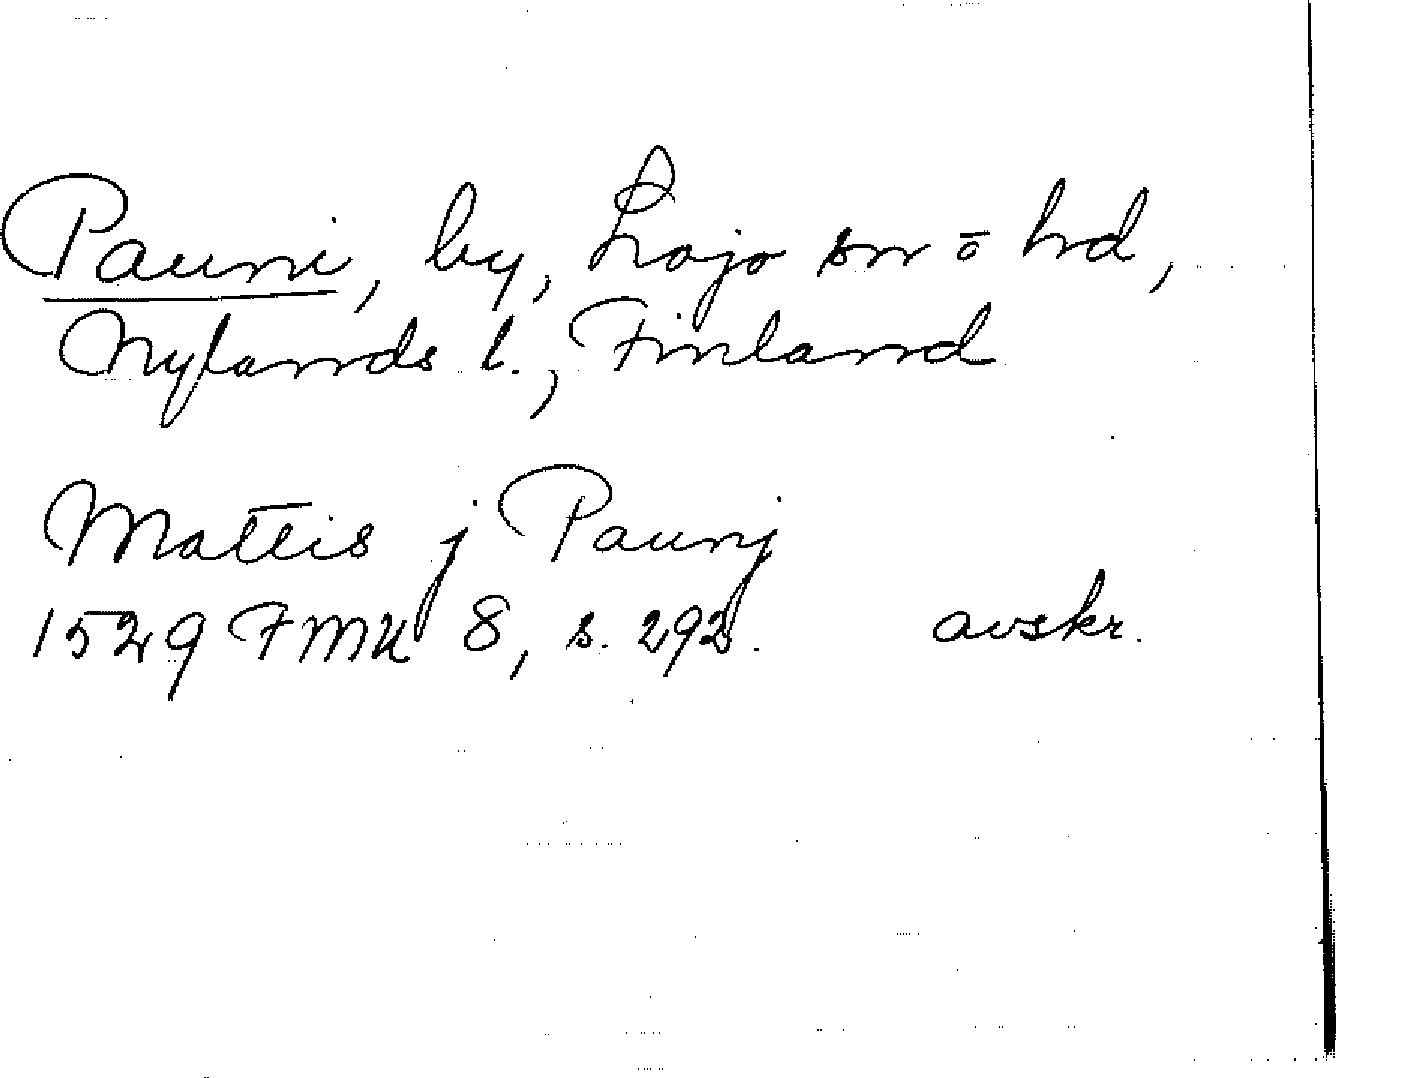 Pauni, by, Lojo sn ō hd,
Nylands l., Finland
Mattis j Paunj
1529 FMU 8, s. 292. avskr.